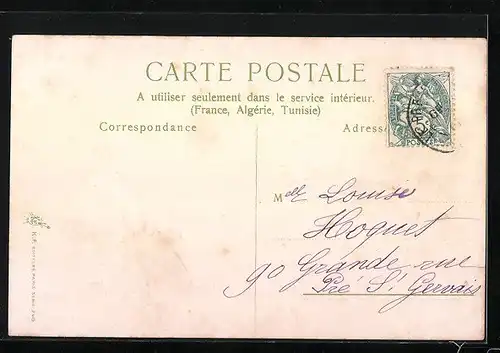 CARTE POSTALE
A utiliser seulement dans le service intérieur.
(France, Algérie, Tunisie)
Correspondance
Adresse
POSTES
Mlle Louise
Hoquet
90 Grande rue
Pré St Gervais